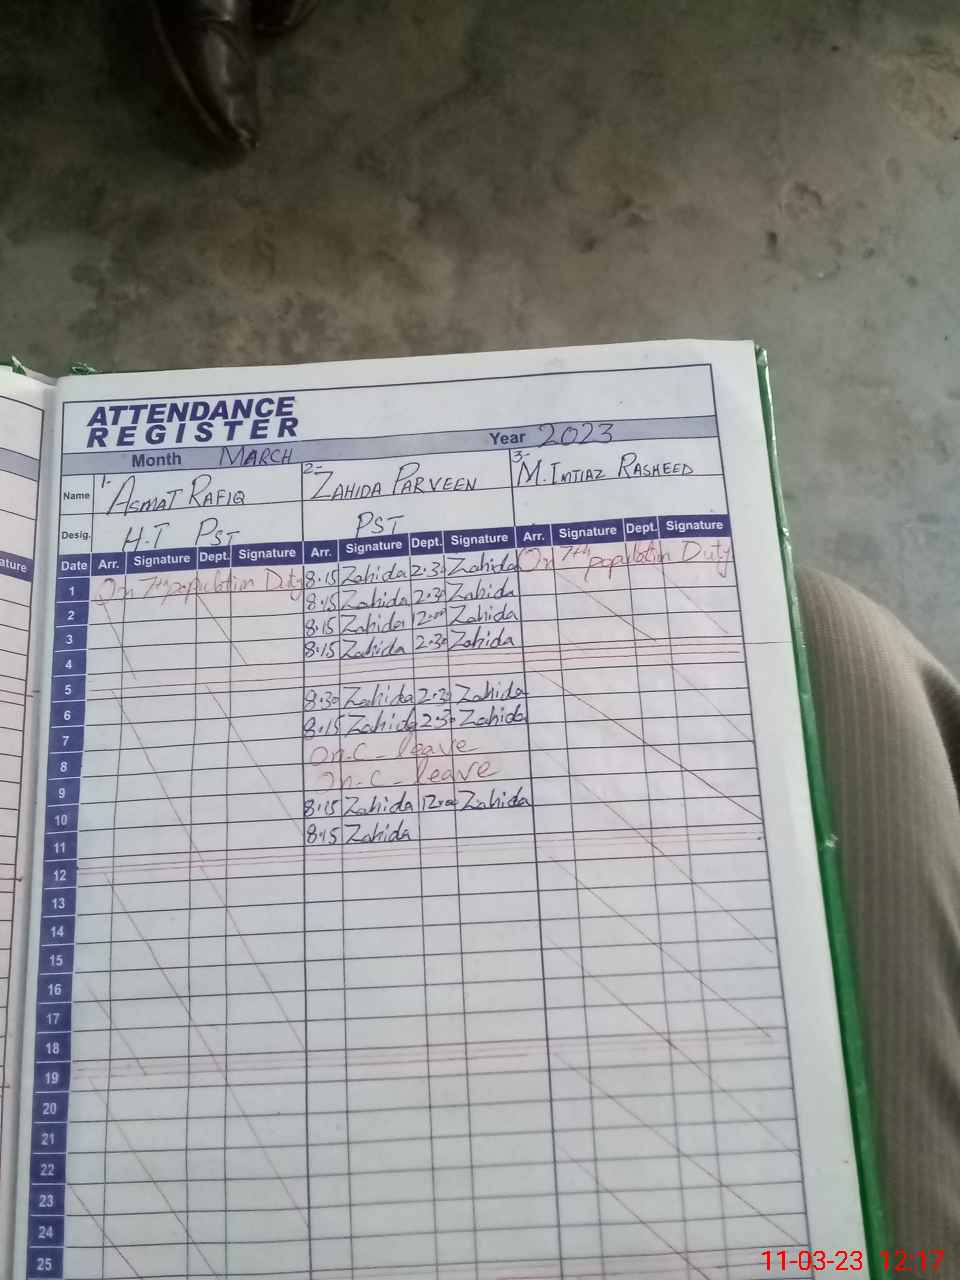 ATTENDANCE
REGISTER
Month MARCH Year 2023
Name 1- ASMAT RAFIQ 2- ZAHIDA PARVEEN 3- M. IMTIAZ RASHEED
Desig. H.T PST PST
Date Arr. Signature Dept. Signature Arr. Signature Dept. Signature Arr. Signature Dept. Signature
ature
1 On 7th population Duty 8.15 Zahida 2.30 Zahida On 7th population Duty
2 8.15 Zahida 2.30 Zahida
3 8.15 Zahida 12.00 Zahida
4 8.15 Zahida 2.30 Zahida
5
6 8.30 Zahida 2.30 Zahida
7 8.15 Zahida 2.30 Zahida
8 On C-leave
9 On C-leave
10 8.15 Zahida 12.00 Zahida
11 8.15 Zahida
12
13
14
15
16
17
18
19
20
21
22
23
24
25
11-03-23 12:17